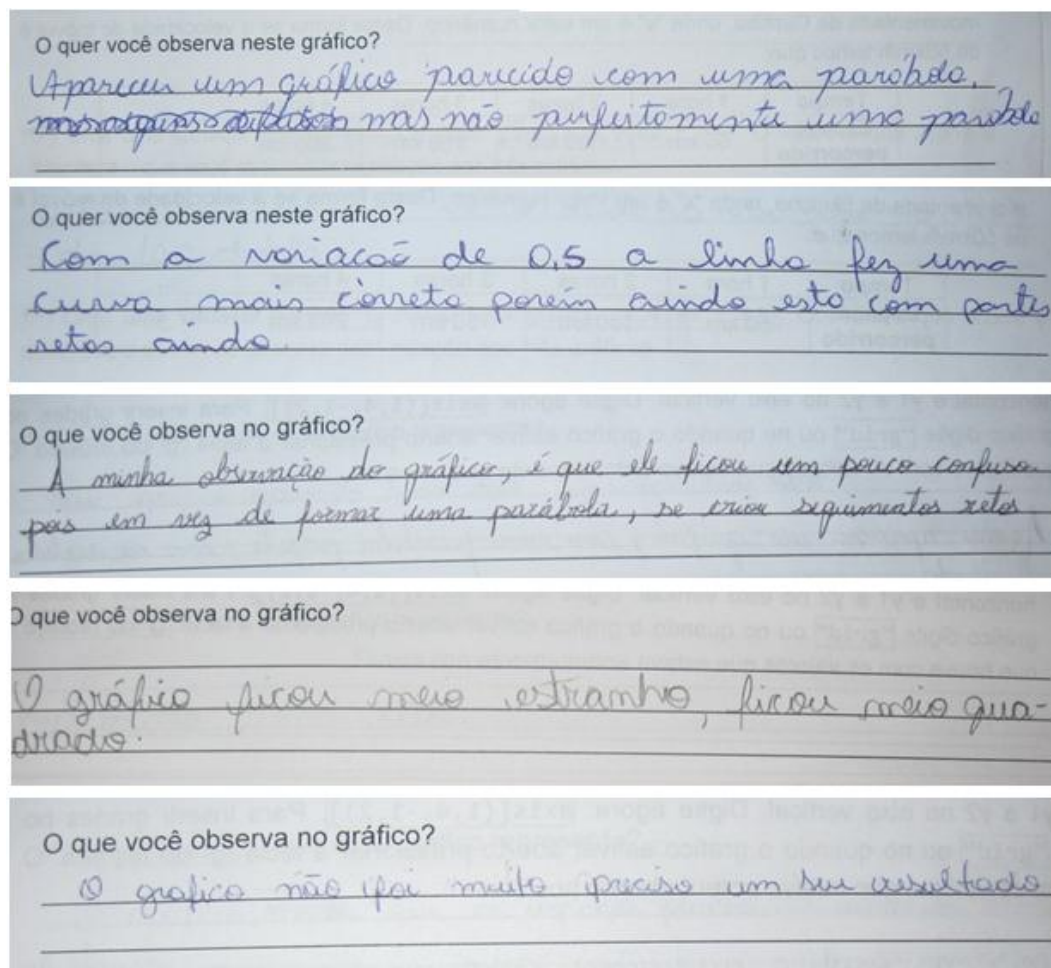 O quer você observa neste gráfico?
Apareceu um gráfico parecido com uma parábola,
mas não perfeitamente uma parábola
O quer você observa neste gráfico?
Com a variação de 0,5 a linha fez uma
curva mais correta porém ainda esta com partes
retas ainda.
O que você observa no gráfico?
A minha observação do gráfico, é que ele ficou um pouco confuso
pois em vez de formar uma parábola, se criou seguimentos retos
O que você observa no gráfico?
O gráfico ficou meio estranho, ficou meio qua-
drado.
O que você observa no gráfico?
O grafico não foi muito preciso um seu resultado